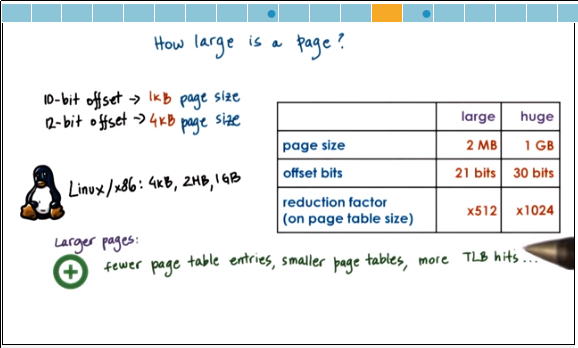 How large is a page?
10-bit offset → 1kB page size
12-bit offset → 4kB page size
large huge
page size 2 MB 1 GB
offset bits 21 bits 30 bits
reduction factor
(on page table size) x512 x1024
Linux/x86: 4kB, 2MB, 1GB
Larger pages:
+ fewer page table entries, smaller page tables, more TLB hits...